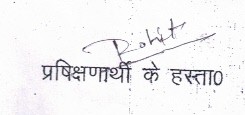 Rohit
प्रषिक्षणार्थी के हस्ता0